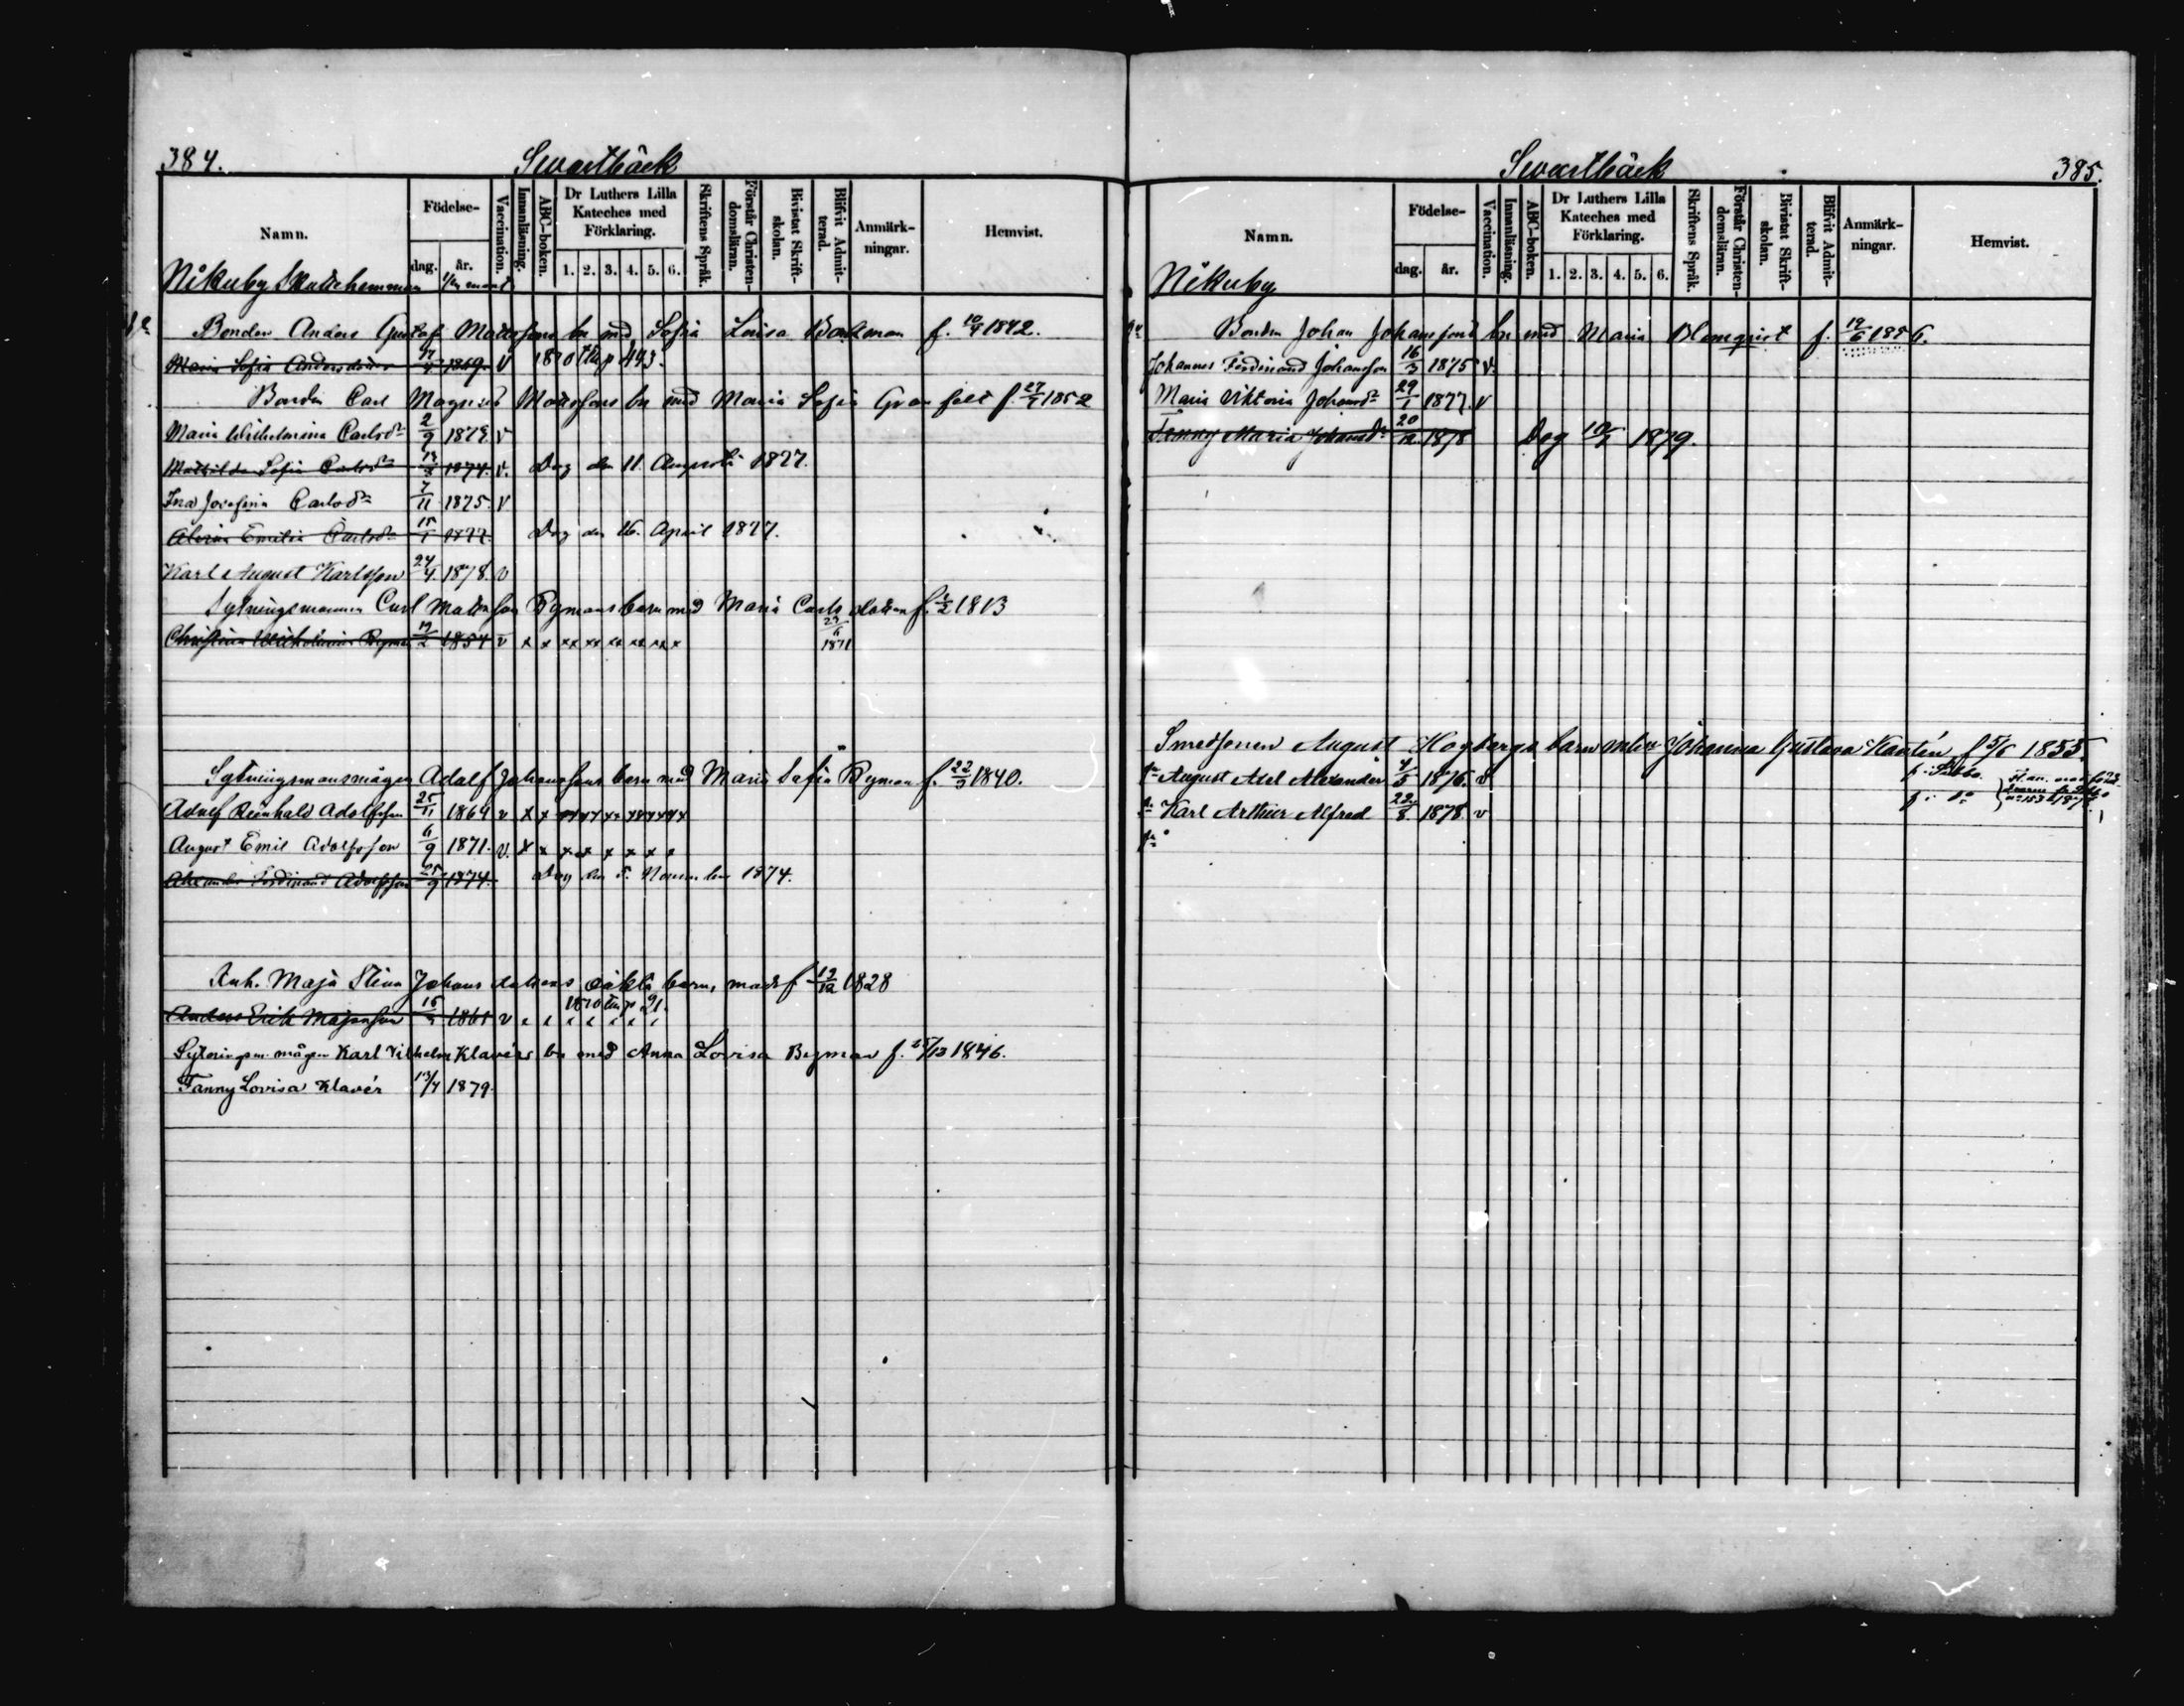 384.
Swartbäck
Namn.
Födelse-
dag.
år.
Vaccination.
Innanläsning.
ABC-boken.
Dr Luthers Lilla
Kateches med
Förklaring.
1. 2. 3. 4. 5. 6.
Skriftens Språk.
Förstår Christen-
domsläran.
Bivistat Skrift-
skolan.
Blifvit Admit-
terad.
Anmärk-
ningar.
Hemvist.
Nikuby Skattehemman
Bonden Anders Gustaf Mattssons bn med Sofia Lovisa f. 10/4 1842.
Maria Sofia Andersdotter 1869. v 1870
Bonden Carl Magnus Mattssons bn med Maria Sofia 1852
Maria Wilhelmina Carlsdr 2/9 v
Mathilda Sofia Carlsdr 1874. v. Dog den 11. Augusti 1877.
Ina Josefina Carlsdr 7/11 1875. v
Alvina Emilia Carlsdr 15/1 1877. Dog den 16. April 1877.
Karl August Karlsson 24/4. 1878. v
Sytningsmannen Carl Mattsson Bymans barn med Maria Carlsdotter 1813
Christina Wilhelmina Byman 19/2 1854 v x x xx xx xx xx xx x 1871
Sytningsmansmågen Adolf Johanssons barn med Maria Sofia Byman f. 22/3 1840.
Adolf Reinhold Adolfsson 25/11 1869 v x x
August Emil Adolfsson 6/9 1871. v. x x x x x x x x
Alexander Ferdinand Adolfsson 25/9 1874. Dog den 5. November 1874.
Enk. Maja Stina Johansdotters oäkta barn, f 12/12 1828
Anders Erik Majasson 1861 v
Sytningsm. mågen Karl Vilhelm Klavérs bn med Anna Lovisa Byman f. 25/12 1846.
Fanny Lovisa Klavér 13/4 1879.
Swartbäck
385.
Namn.
Födelse-
dag.
år.
Vaccination.
Innanläsning.
ABC-boken.
Dr Luthers Lilla
Kateches med
Förklaring.
1. 2. 3. 4. 5. 6.
Skriftens Språk.
Förstår Christen-
domsläran.
Bivistat Skrift-
skolan.
Blifvit Admit-
terad.
Anmärk-
ningar.
Hemvist.
Nikuby
Bonden Johan Johanssons bn med Maria Blomqvist f. 19/6 1856.
Johannes Ferdinand Johansson 16/3 1875 v.
Maria Viktoria Johansdr 29/1 1877. v
Fanny Maria Johansdr 20/12 1878 Dog 1879.
Smedsonen August Hogbergs barn m. hu Johanna Gustava Kantén f 5/6 1855.
August Axel Alexander 4/5 1876. v
Karl Arthur Alfred 22/8. 1878. v